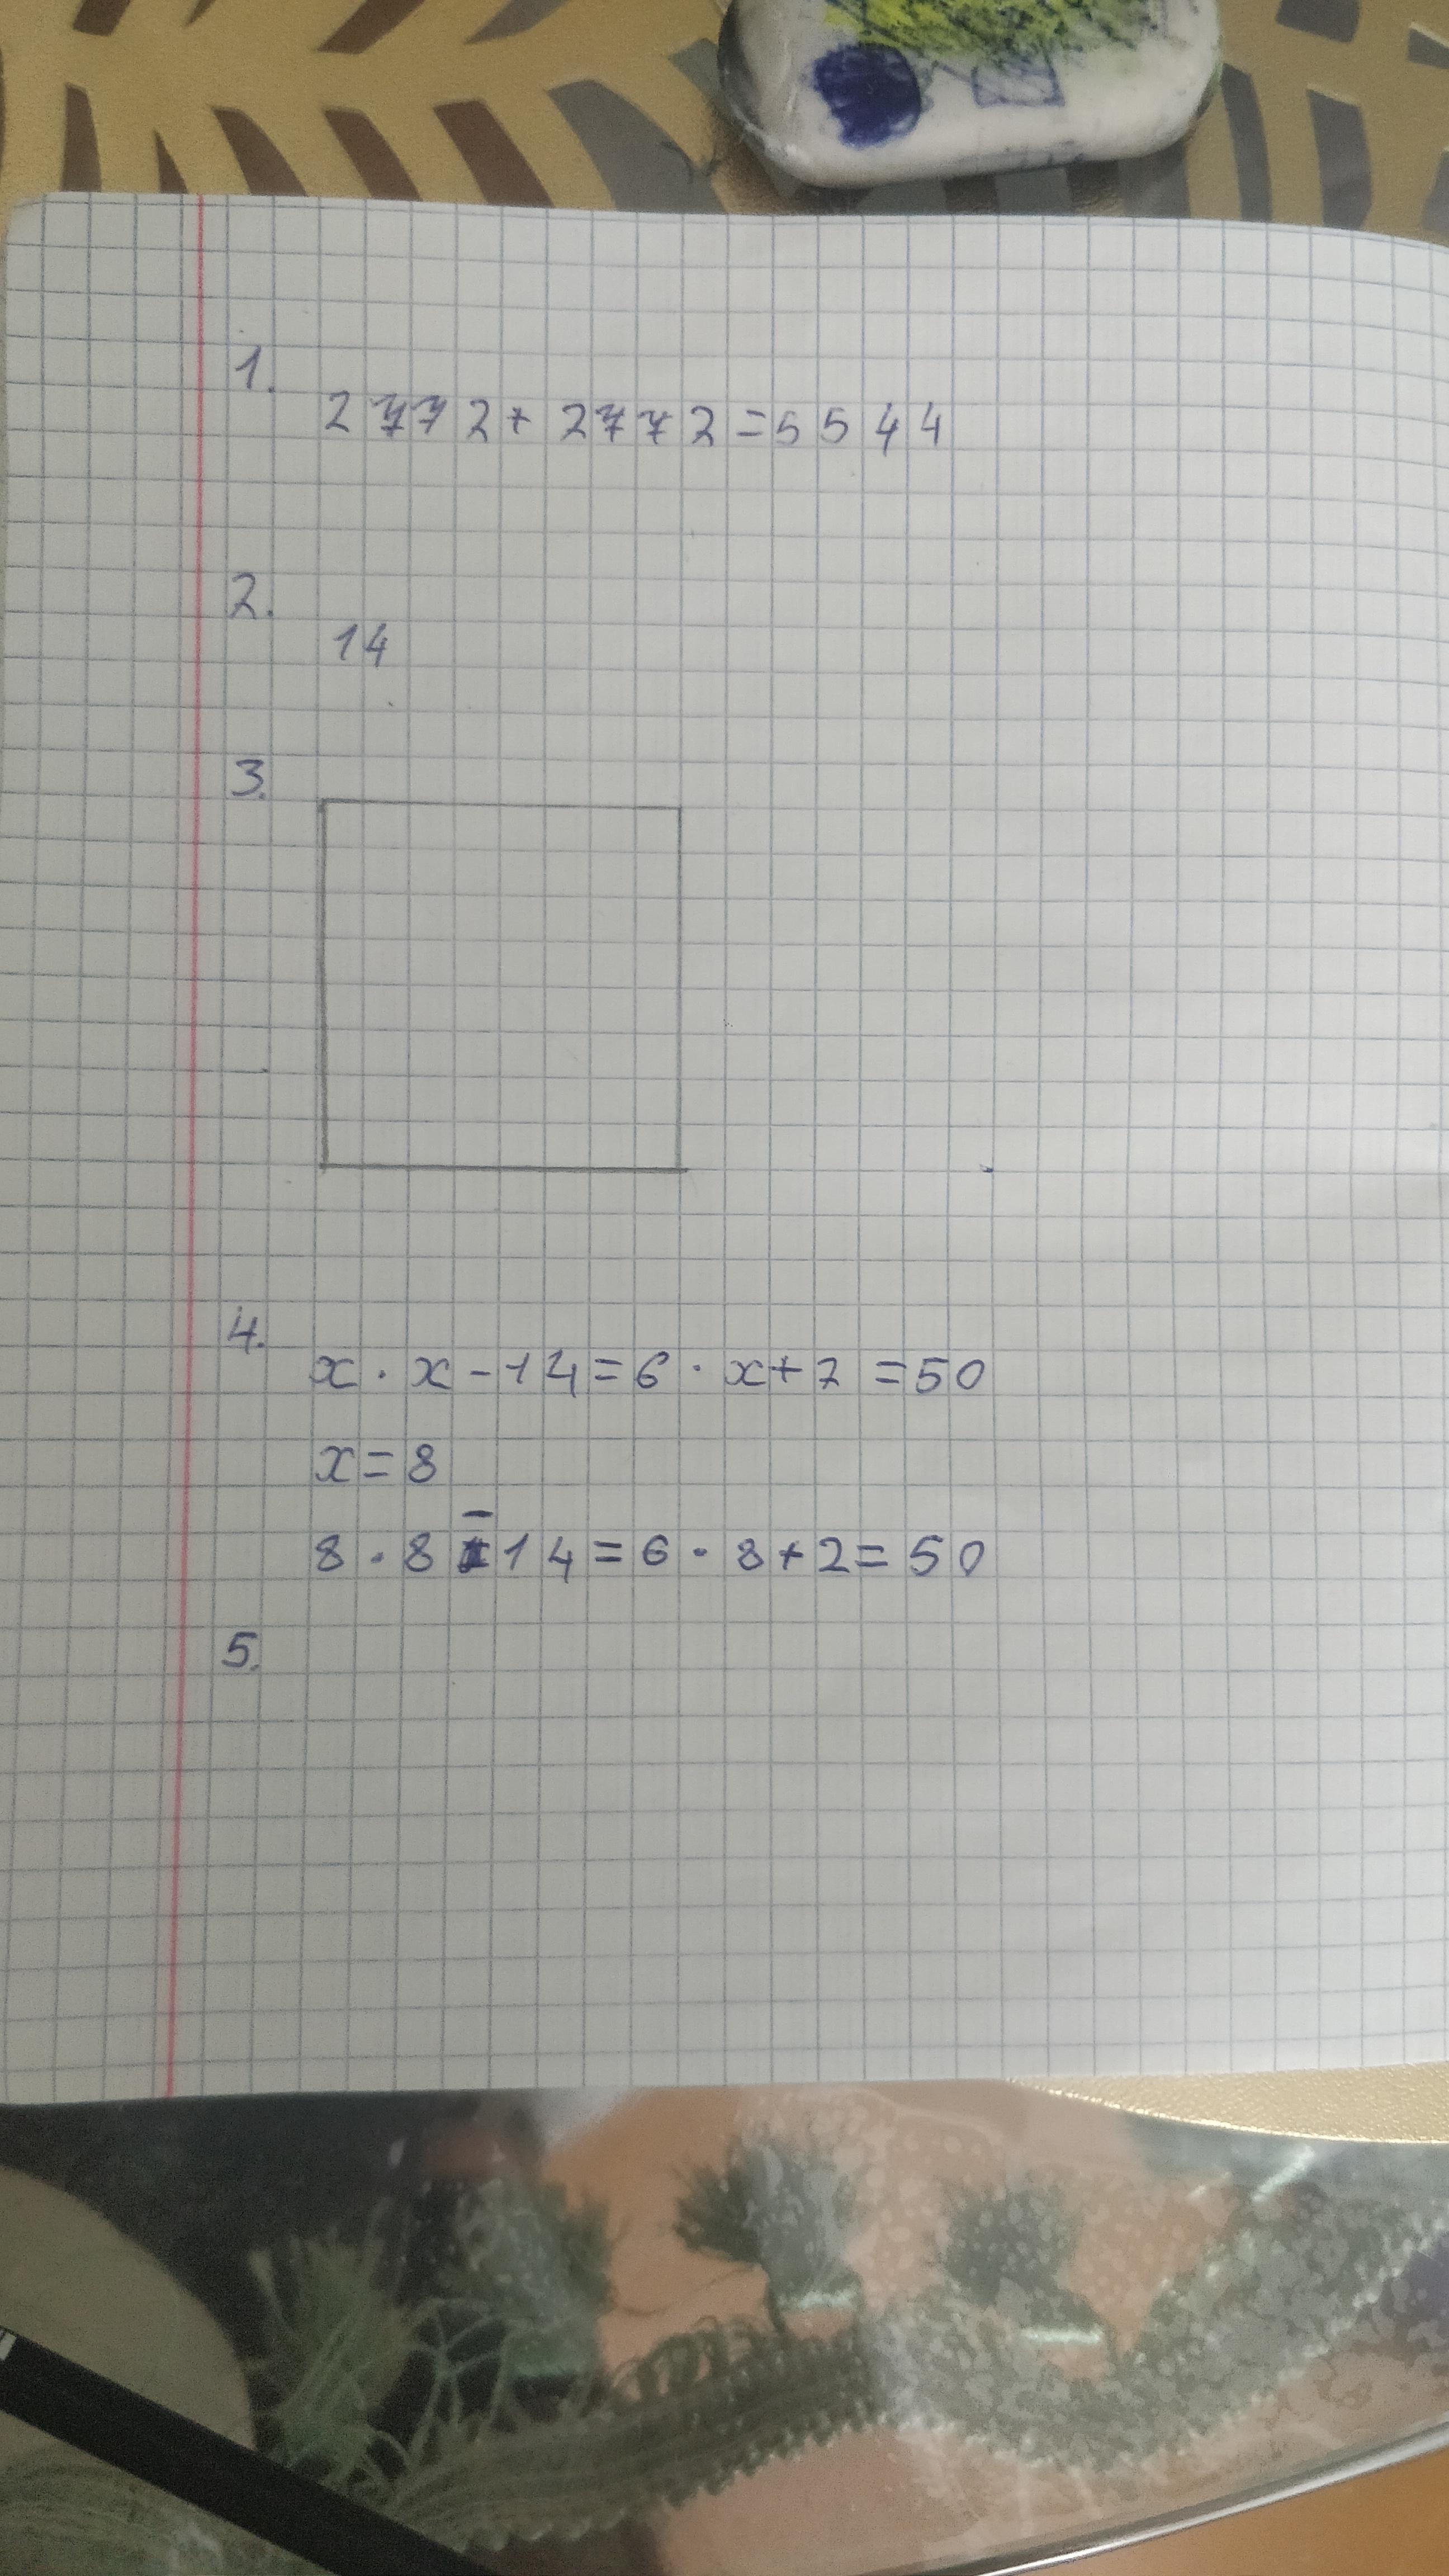 1.
2772+2772=5544
2.
14
3.
4.
x·x-14=6·x+2=50
x=8
8·8-14=6·8+2=50
5.